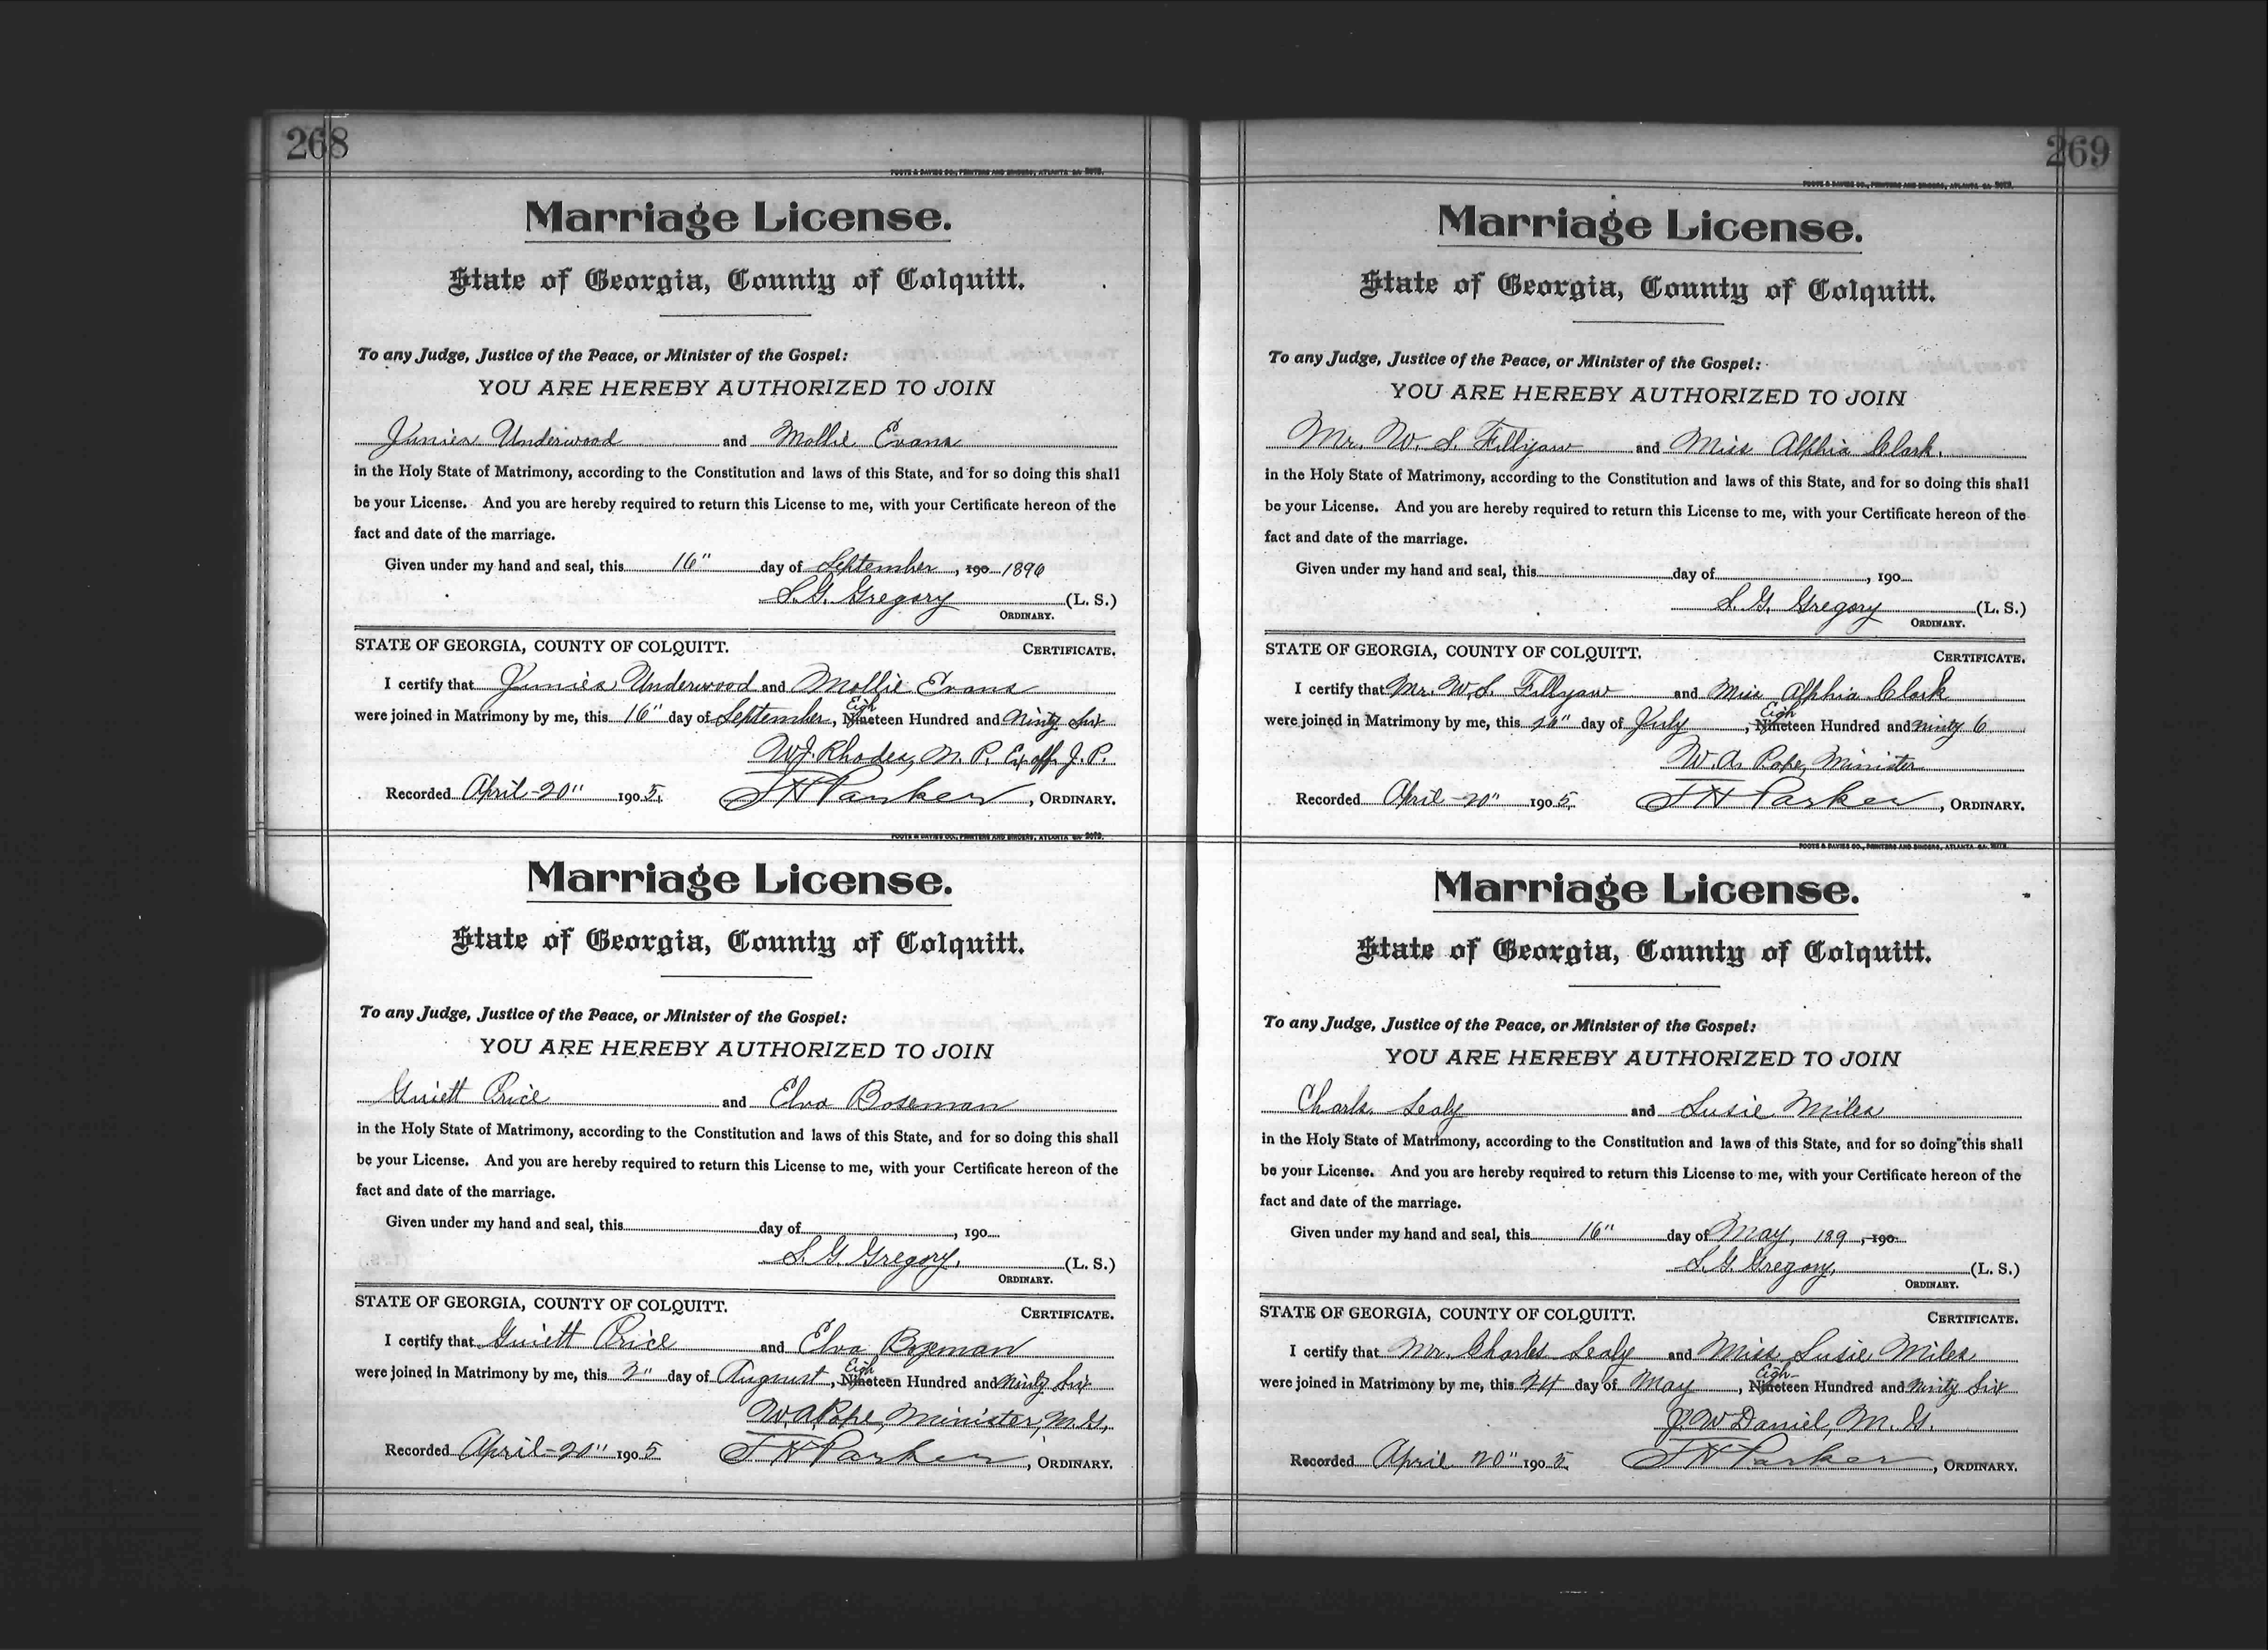 268
FOOTE & DAVIES CO., PRINTERS AND BINDERS, ATLANTA GA.
Marriage License.
State of Georgia, County of Colquitt.
To any Judge, Justice of the Peace, or Minister of the Gospel:
YOU ARE HEREBY AUTHORIZED TO JOIN
Junies Underwood and Mollie Evans
in the Holy State of Matrimony, according to the Constitution and laws of this State, and for so doing this shall
be your License. And you are hereby required to return this License to me, with your Certificate hereon of the
fact and date of the marriage.
Given under my hand and seal, this 16" day of September, 190 1896
S.G. Gregory (L. S.)
ORDINARY.
STATE OF GEORGIA, COUNTY OF COLQUITT. CERTIFICATE.
I certify that Junies Underwood and Mollie Evans
were joined in Matrimony by me, this 16" day of September, Nineteen Eigh Hundred and Ninty Six
W.J. Rhodes, N. P. Ex off. J. P.
Recorded April-20" 1905. J H Parker, ORDINARY.
FOOTE & DAVIES CO., PRINTERS AND BINDERS, ATLANTA GA.
Marriage License.
State of Georgia, County of Colquitt.
To any Judge, Justice of the Peace, or Minister of the Gospel:
YOU ARE HEREBY AUTHORIZED TO JOIN
Price and Elva Boseman
in the Holy State of Matrimony, according to the Constitution and laws of this State, and for so doing this shall
be your License. And you are hereby required to return this License to me, with your Certificate hereon of the
fact and date of the marriage.
Given under my hand and seal, this day of , 190
S.G. Gregory. (L. S.)
ORDINARY.
STATE OF GEORGIA, COUNTY OF COLQUITT. CERTIFICATE.
I certify that Price and Elva Bozeman
were joined in Matrimony by me, this 2" day of August, Nineteen Eigh Hundred and Ninty Six
W.A. Pope, Minister, M. G.,
Recorded April-20" 1905 J H Parker, ORDINARY.
269
FOOTE & DAVIES CO., PRINTERS AND BINDERS, ATLANTA GA.
Marriage License.
State of Georgia, County of Colquitt.
To any Judge, Justice of the Peace, or Minister of the Gospel:
YOU ARE HEREBY AUTHORIZED TO JOIN
Mr. W. S. Fillyaw and Miss Alphia Clark.
in the Holy State of Matrimony, according to the Constitution and laws of this State, and for so doing this shall
be your License. And you are hereby required to return this License to me, with your Certificate hereon of the
fact and date of the marriage.
Given under my hand and seal, this day of , 190
S. G. Gregory (L. S.)
ORDINARY.
STATE OF GEORGIA, COUNTY OF COLQUITT. CERTIFICATE.
I certify that Mr. W. S. Fillyaw and Miss Alphia Clark
were joined in Matrimony by me, this day of July, Nineteen Eigh Hundred and Ninty 6
W. A. Pope, Minister
Recorded April-20" 1905. J H Parker, ORDINARY.
FOOTE & DAVIES CO., PRINTERS AND BINDERS, ATLANTA GA.
Marriage License.
State of Georgia, County of Colquitt.
To any Judge, Justice of the Peace, or Minister of the Gospel:
YOU ARE HEREBY AUTHORIZED TO JOIN
Charls Sealy and Susie Miles
in the Holy State of Matrimony, according to the Constitution and laws of this State, and for so doing this shall
be your License. And you are hereby required to return this License to me, with your Certificate hereon of the
fact and date of the marriage.
Given under my hand and seal, this 16" day of May, 189 , 190
S. G. Gregory, (L. S.)
ORDINARY.
STATE OF GEORGIA, COUNTY OF COLQUITT. CERTIFICATE.
I certify that Mr. Charles Sealy and Miss Susie Miles
were joined in Matrimony by me, this 24 day of May, Nineteen Eigh- Hundred and Ninty Six
J. W Daniel, M. G.
Recorded April 20" 1905. J H Parker, ORDINARY.